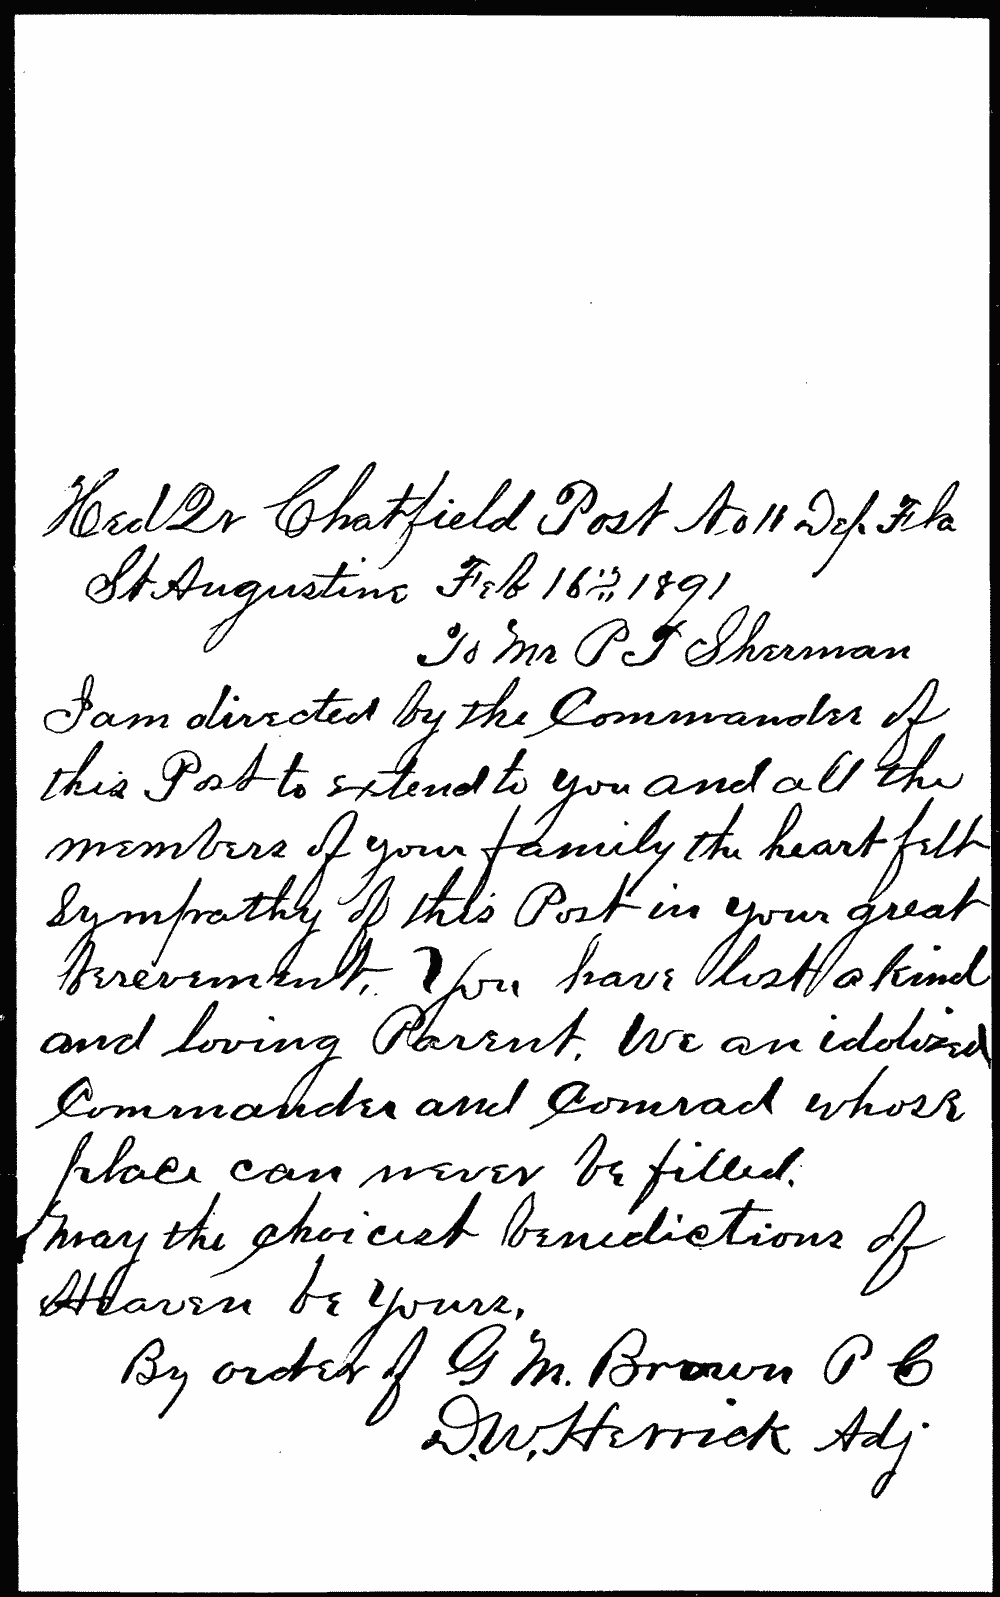 Hed Qr Chatfield Post No 11 Dep. Fla
St Augustine Feb 16th 1891
To Mr P T Sherman
I am directed by the Commander of
this Post to extend to you and all the
members of your family the heart felt
Sympathy of this Post in your great
berevement. You have lost a kind
and loving Parent. We an idolized
Commander and Comrad whose
place can never be filled.
May the choicest benedictions of
Heaven be yours.
By order of G M. Brown P C
D.W. Herrick Adj